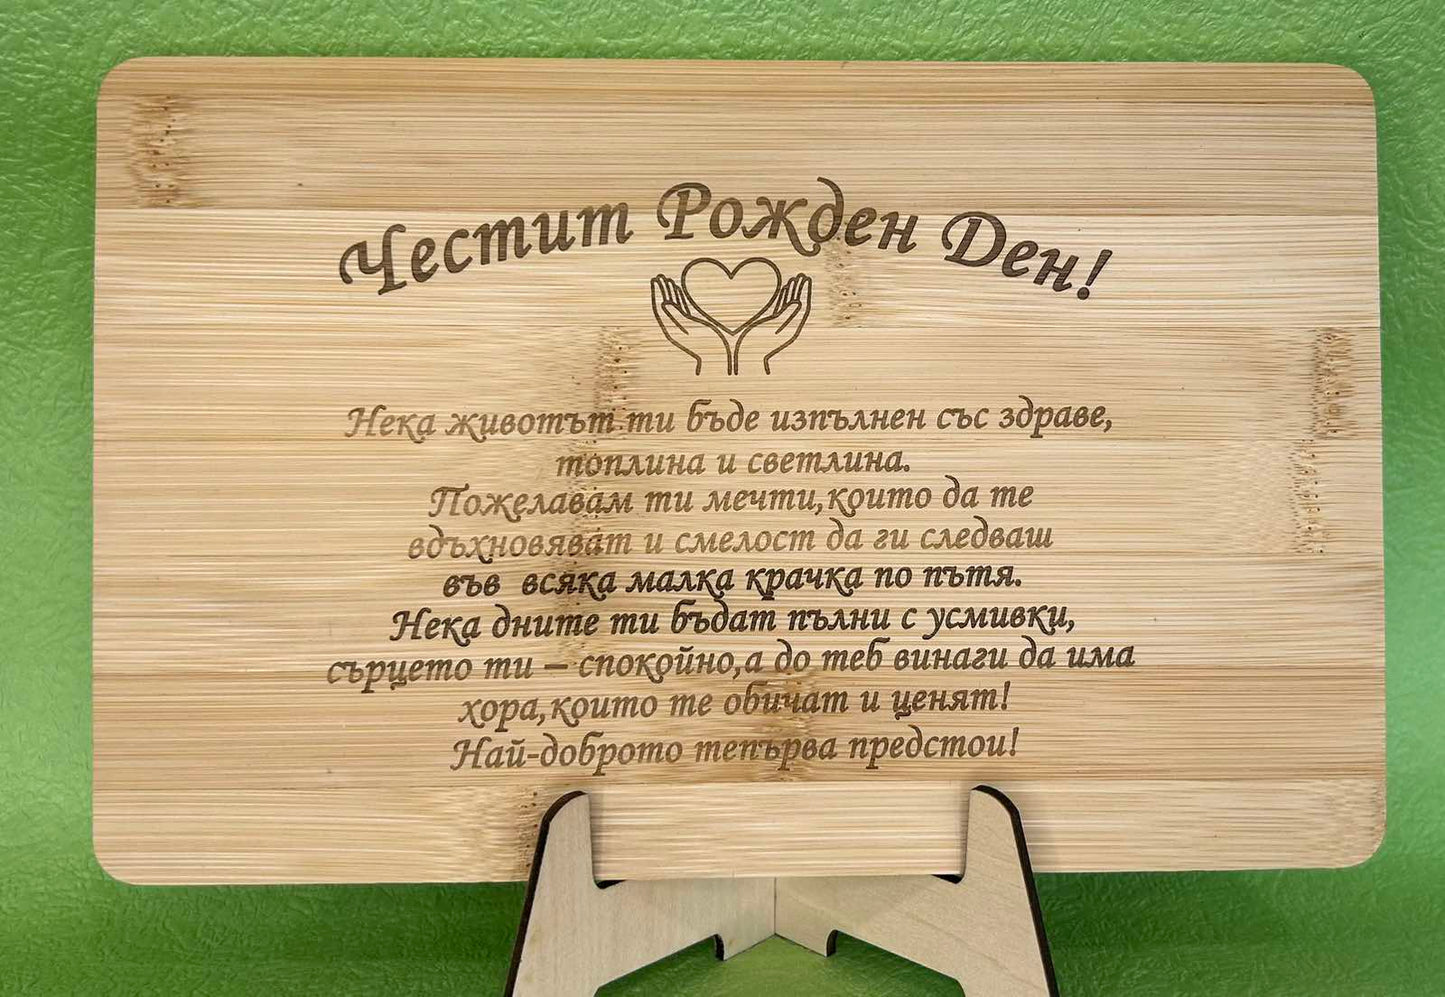 Честит Рожден Ден!
Нека животът ти бъде изпълнен със здраве,
топлина и светлина.
Пожелавам ти мечти,които да те
вдъхновяват и смелост да ги следваш
във  всяка малка крачка по пътя.
Нека дните ти бъдат пълни с усмивки,
сърцето ти – спокойно,а до теб винаги да има
хора,които те обичат и ценят!
Най-доброто тепърва предстои!